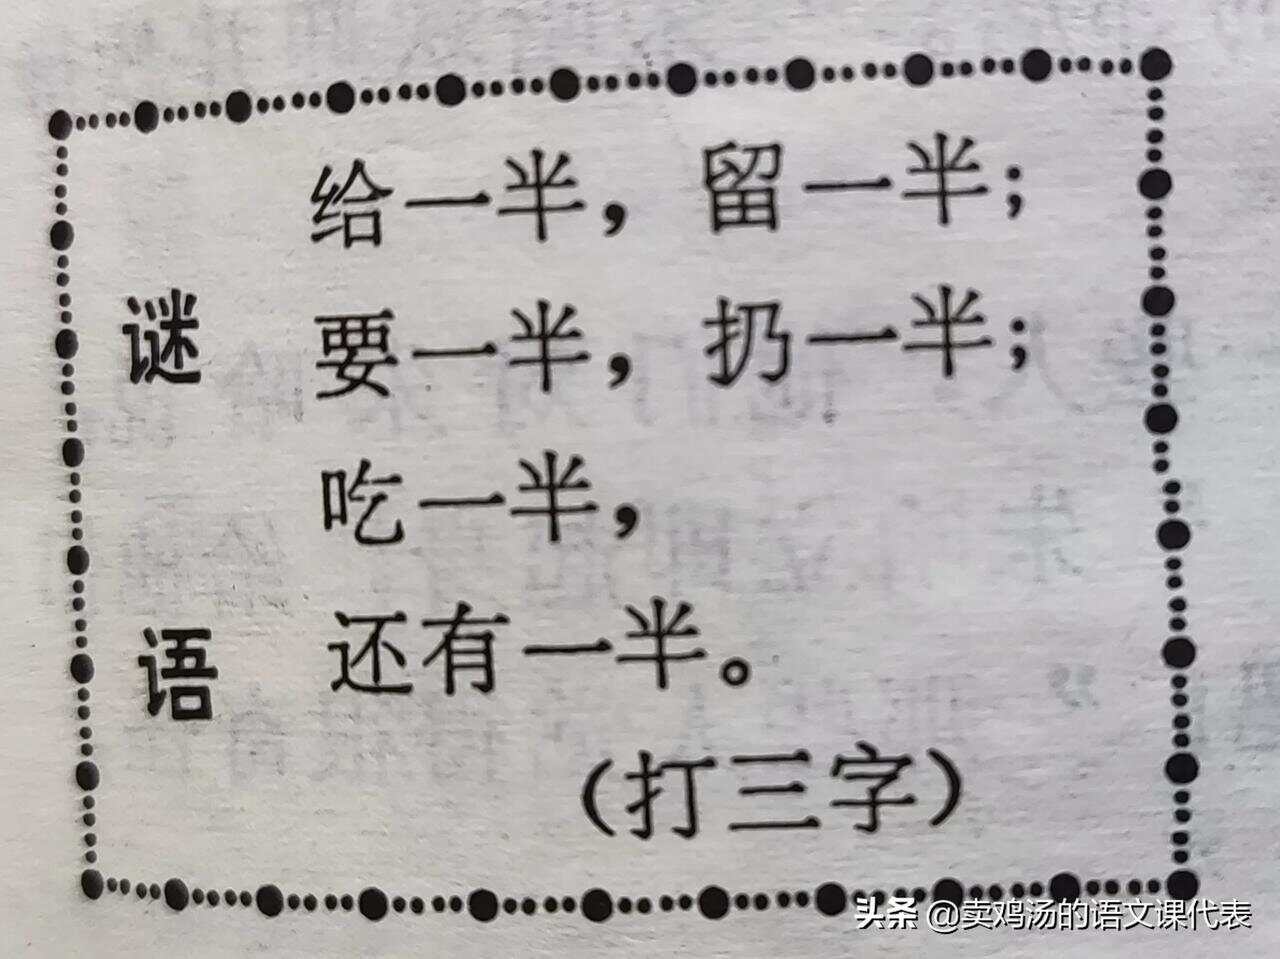 谜语
给一半，留一半；
要一半，扔一半；
吃一半，
还有一半。
（打三字）
头条 @卖鸡汤的语文课代表